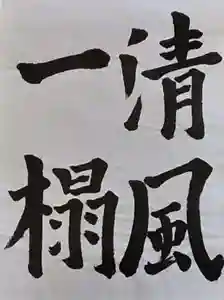 清風
一榻